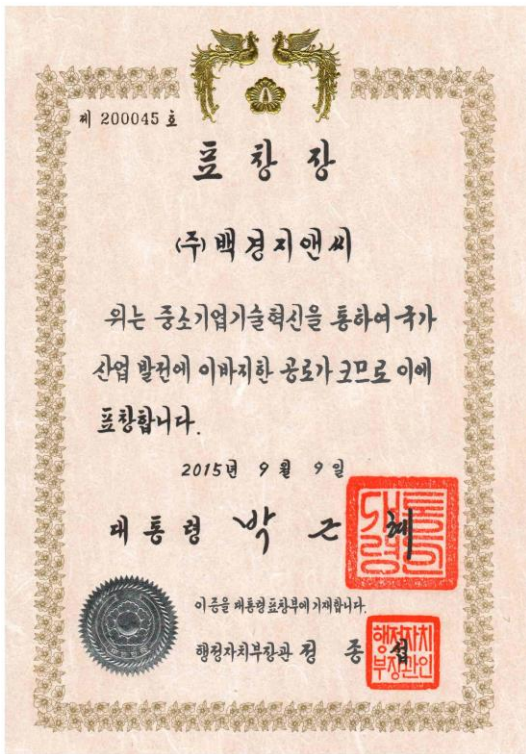 제 200045 호
표 창 장
(주)백경지앤씨
위는 중소기업기술혁신을 통하여 국가
산업 발전에 이바지한 공로가 크므로 이에
표창합니다.
2015년 9월 9일
대통령 박 근 혜
대통령
이 증을 대통령표창부에 기재합니다.
행정자치부장관 정 종 섭
행정자치
부장관인